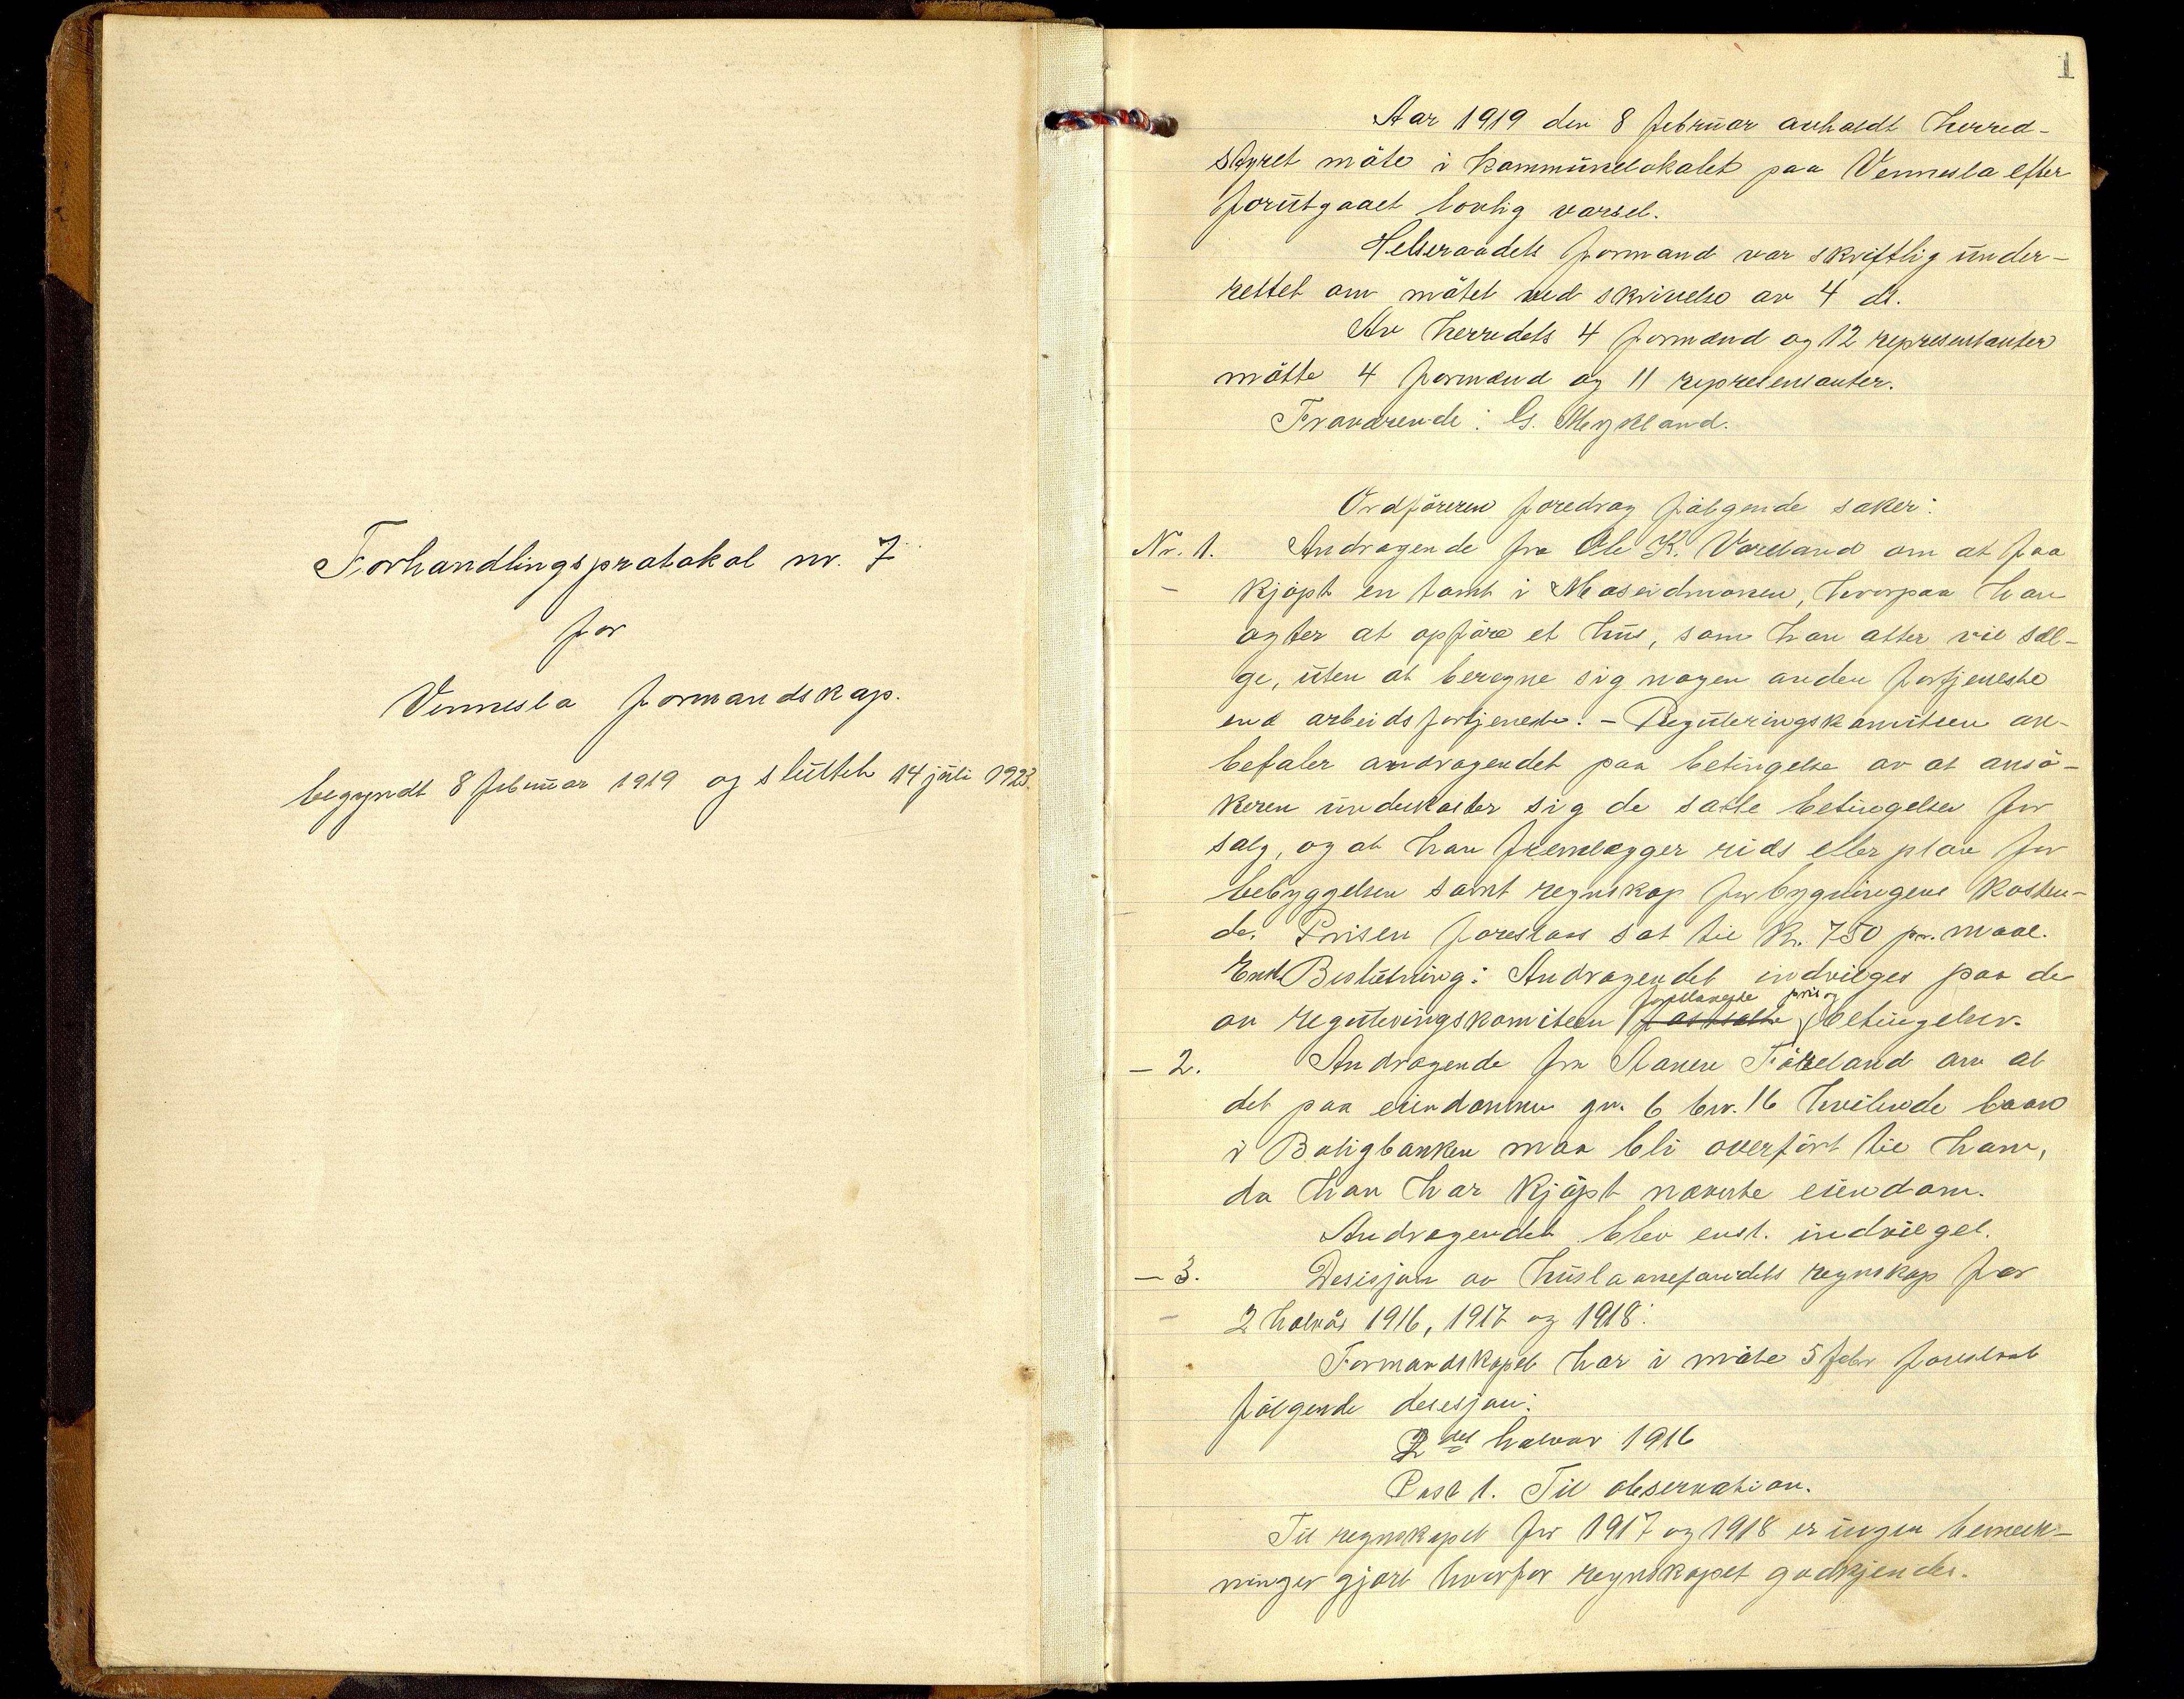 Forhandlingsprotokol nr. 7
for
Vennesla formandskap.
begyndt 8 februar 1919 og sluttet 14 juli 1923.
1
Aar 1919 den 8 februar avholdt herred-
styret møte i kommunelokalet paa Vennesla efter
forutgaaet lovlig varsel.
Helseraadets formand var skriftlig under-
rettet om møtet ved skrivelse av 4 ds.
Av herredets 4 formænd og 12 representanter
møtte 4 formænd og 11 representanter.
Fraværende: G. Mykland.
Ordføreren foredrog følgende saker:
Nr. 1. Andragende fra Ole K. Voreland om at faa
kjøpt en tomt i Moseidmoen, hvorpaa han
agter at opføre et hus, som han atter vil sæl-
ge, uten at beregne sig nogen anden fortjeneste
end arbeidsfortjeneste. – Reguleringskomiteen an-
befaler andragendet paa betingelse av at ansø-
keren underkaster sig de satte betingelser for
salg, og at han fremlægger rids eller plan for
bebyggelsen samt regnskap for bygningens kosten-
de. Prisen foreslaas sat til Kr. 750 pr. maal.
Enst. Beslutning: Andragendet indvilges paa de
av reguleringskomiteen fastsatte foreslaaede pris og betingelser.
– 2. Andragende fra Aanen Føreland om at
det paa eiendommen gn. 6 bnr. 16 hvilende laan
i Boligbanken maa bli overført til ham,
da han har kjøpt nævnte eiendom.
Andragendet blev enst. indvilget.
– 3. Desisjon av huslaanefondets regnskap for
2 halvår 1916, 1917 og 1918:
Formandskapet har i møte 5 febr foreslaat
følgende desesjon:
2det halvaar 1916
Post 1. Til observation.
Til regnskapet for 1917 og 1918 er ingen bemerk-
ninger gjort hvorfor regnskapet godkjendes.